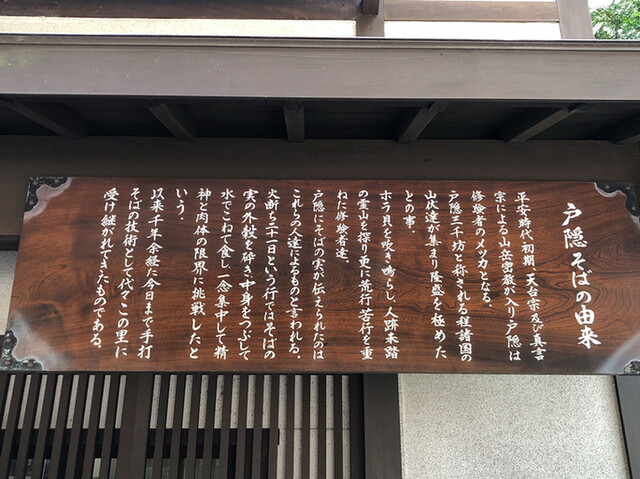 戸隠そばの由来
平安時代初期、天台宗及び真言
宗による山岳密教が入り戸隠は
修験者のメッカとなる。
戸隠三千坊と称される程諸国の
山伏達が集まり隆盛を極めた
との事。
ホラ貝を吹き鳴らし、人跡未踏
の霊山を探り、更に荒行苦行を重
ねた修験者達。
戸隠にそばの実が伝えられたのは
これらの人達によるものと言われる。
火断ち三十一日という行ではそばの
実の外殻を砕き、中身をつぶして
水でこねて食し、一念集中して精
神と肉体の限界に挑戦したと
いう。
以来千年余経た今日まで手打
そばの技術として代々この里に
受け継がれてきたものである。